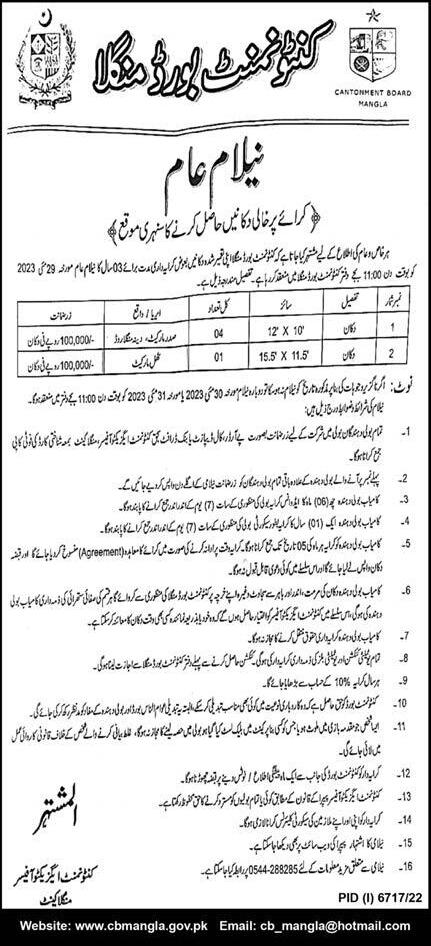 کنٹونمنٹ بورڈ منگلا
CANTONMENT BOARD
MANGLA
نیلام عام
﴿کرائے پر خالی دکانیں حاصل کرنے کا سنہری موقع﴾
ہر خاص و عام کی اطلاع کے لیے مشتہر کیا جاتا ہے کہ کنٹونمنٹ بورڈ منگلا اپنی تعمیر شدہ دکانیں بعوض کرایہ داری مدت برائے 03 سال کا نیلام عام مورخہ 29 مئی 2023
کو بوقت دن 11:00 بجے دفتر کنٹونمنٹ بورڈ منگلا میں منعقد کر رہا ہے۔ تفصیل مندرجہ ذیل ہے۔
نمبر شمار تفصیل سائز کل تعداد ایریا / واقع زر ضمانت
1 دکان 12' X 10' 04 صدر مارکیٹ، دینہ منگلا روڈ 100,000/- روپے فی دکان
2 دکان 15.5' X 11.5' 01 مارکیٹ 100,000/- روپے فی دکان
نوٹ:۔ اگر ناگزیر وجوہات کی بنا پر مذکورہ تاریخ کو نیلام نہ ہو سکا تو دوبارہ نیلام مورخہ 30 مئی 2023 یا مورخہ 31 مئی 2023 کو بوقت دن 11:00 بجے دفتر میں منعقد ہوگا۔
نیلام کی شرائط و ضوابط درج ذیل ہیں:۔
1۔ تمام بولی دہندگان بولی میں شرکت کے لیے زر ضمانت بصورت پے آرڈر، کال ڈیپازٹ یا بینک ڈرافٹ بحق کنٹونمنٹ ایگزیکٹو آفیسر، منگلا کینٹ بمعہ شناختی کارڈ کی فوٹو کاپی
جمع کرانا ہوگا۔
2۔ پہلے نمبر پر آنے والے بولی دہندہ کے علاوہ باقی تمام بولی دہندگان کو زر ضمانت نیلامی کے اگلے دن واپس کر دیے جائیں گے۔
3۔ کامیاب بولی دہندہ چھ (06) ماہ کا ایڈوانس کرایہ بولی کی منظوری کے سات (7) یوم کے اندر اندر جمع کرانے کا پابند ہوگا۔
4۔ کامیاب بولی دہندہ ایک (01) سال کا کرایہ بطور سیکورٹی بولی کی منظوری کے سات (7) یوم کے اندر اندر جمع کرانے کا پابند ہوگا۔
5۔ کامیاب بولی دہندہ کو کرایہ ہر ماہ کی 05 تاریخ تک جمع کرانا ہوگا۔ کرایہ وقت پر ادا نہ کرنے کی صورت میں کرائے کا معاہدہ (Agreement) منسوخ کر دیا جائے گا اور قبضہ
دکان واپس لے لیا جائے گا اور اس سلسلے میں کوئی دعویٰ قابل قبول نہ ہوگا۔
6۔ کامیاب بولی دہندہ دکان کی مرمت، اندر اور باہر سے سجاوٹ وغیرہ اپنے خرچہ پر کنٹونمنٹ بورڈ منگلا کی منظوری سے کروائے گا۔ ہر قسم کی صفائی ستھرائی کی ذمہ داری کامیاب بولی
دہندہ کی ہوگی، اس سلسلے میں کنٹونمنٹ ایگزیکٹو آفیسر کو اختیار حاصل ہوں گے کہ وہ خود یا بذریعہ نمائندہ کسی بھی وقت دکان کا معائنہ کر سکتا ہے۔
7۔ کامیاب بولی دہندہ کرایہ داری حقوق منتقل کرنے کا مجاز نہ ہوگا۔
8۔ تمام یوٹیلٹی کنکشن اور یوٹیلٹی بلز کی ذمہ داری کرایہ دار کی ہوگی۔ کنکشن حاصل کرنے سے پہلے دفتر کنٹونمنٹ بورڈ منگلا سے اجازت لینا ہوگی۔
9۔ ہر سال کرایہ 10% کے حساب سے بڑھایا جائے گا۔
10۔ کنٹونمنٹ بورڈ کو حق حاصل ہے کہ وہ کاروباری نوعیت میں کوئی بھی مناسب تبدیلی کر سکے، البتہ یہ تبدیلی بورڈ، عوام الناس اور بولی دہندہ کے مفاد کو مدنظر رکھ کر کی جائے گی۔
11۔ ایسا شخص جو مقدمہ بازی میں ملوث ہو یا جس کو کسی بنا پر کینٹ میں بلیک لسٹ کیا گیا ہو بولی میں حصہ لینے کا مجاز نہ ہوگا، غلط بیانی کرنے والے شخص کے خلاف قانونی کارروائی عمل
میں لائی جائے گی۔
12۔ کرایہ دار کو کنٹونمنٹ بورڈ کی جانب سے ایک ماہ پیشگی اطلاع / نوٹس دینے پر قبضہ چھوڑنا ہوگا۔
13۔ کنٹونمنٹ ایگزیکٹو آفیسر پیپرا کے قانون کے مطابق کوئی یا تمام بولیوں کو مسترد کرنے کا حق محفوظ رکھتا ہے۔
14۔ کرایہ دار کو اپنی اور اپنے ملازمین کی سیکورٹی کلیئرنس کرانا لازمی ہوگا۔
15۔ نیلامی کا اشتہار پیپرا کی ویب سائٹ پر بھی دیکھا جا سکتا ہے۔
16۔ نیلامی سے متعلق مزید معلومات کے لئے 0544-288285 پر رابطہ کیا جا سکتا ہے۔
المشتہر
کنٹونمنٹ ایگزیکٹو آفیسر
منگلا کینٹ
PID (I) 6717/22
Website: www.cbmangla.gov.pk Email: cb_mangla@hotmail.com